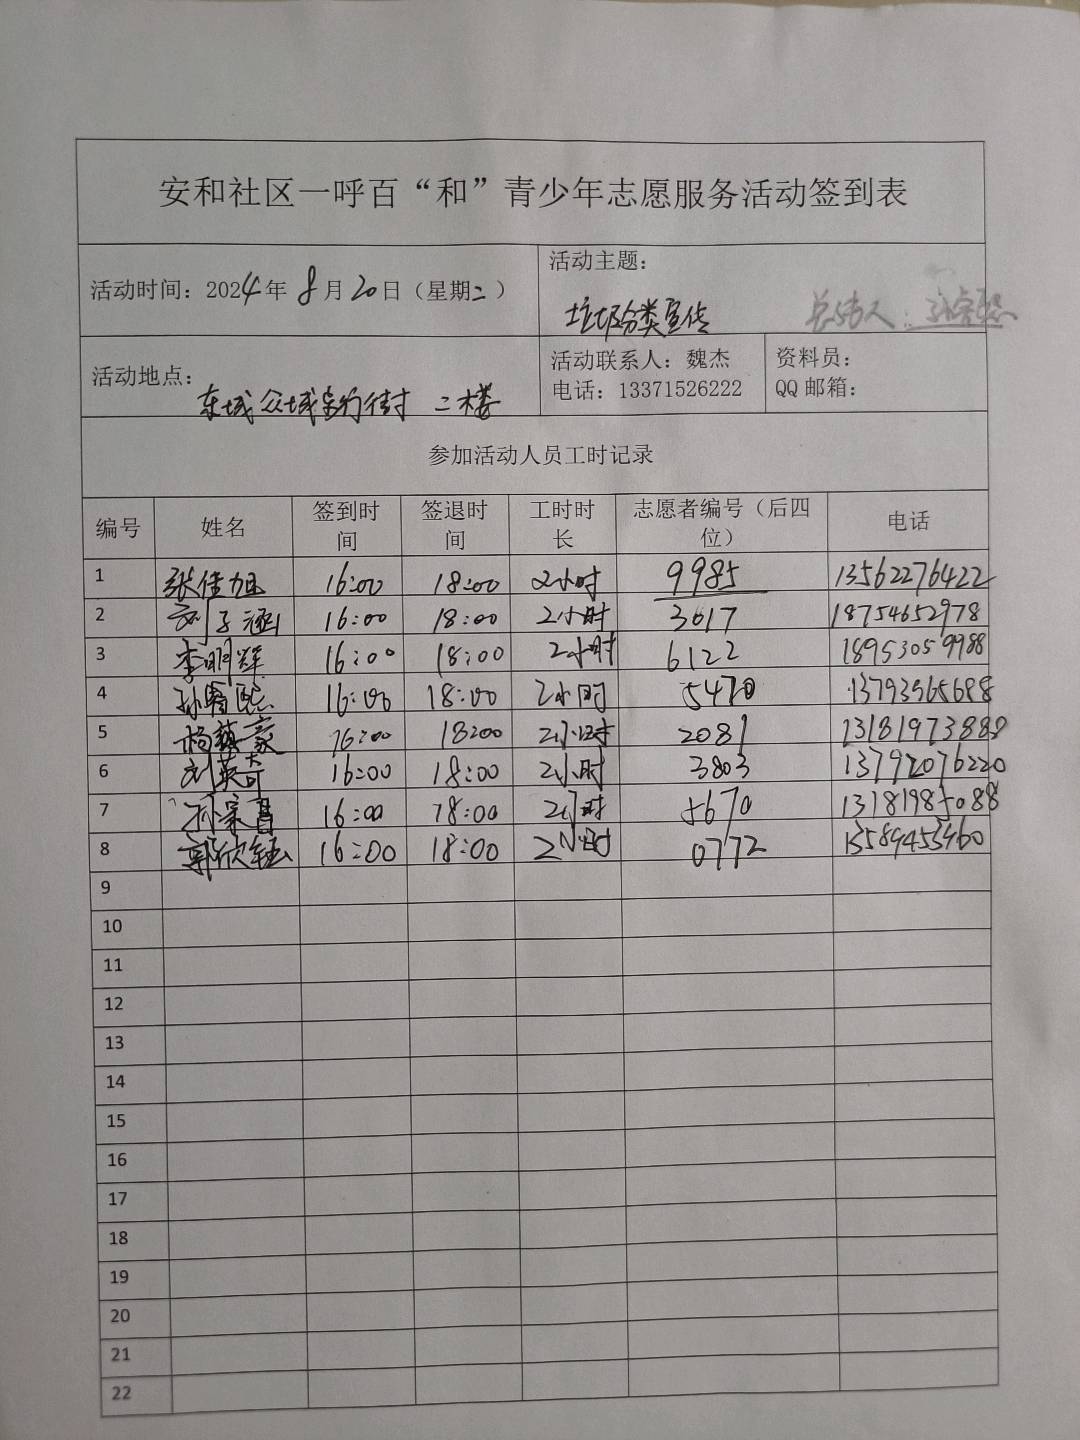 安和社区一呼百“和”青少年志愿服务活动签到表
活动时间：2024年8月20日（星期二）
活动主题：
垃圾分类宣传
总结人：
活动地点：
东城众城步行街 二楼
活动联系人：魏杰
电话：13371526222
资料员：
QQ邮箱：
参加活动人员工时记录
编号 姓名 签到时间 签退时间 工时时长 志愿者编号（后四位） 电话
1 张佳旭 16:00 18:00 2小时 9985 13562276422
2 刘子涵 16:00 18:00 2小时 3617 18754652978
3 李明辉 16:00 18:00 2小时 6122 18953059988
4 孙睿熙 16:00 18:00 2小时 5470 13793965688
5 杨 豪 16:00 18:00 2小时 2081 13181973888
6 刘英奇 16:00 18:00 2小时 3803 13792076220
7 孙家 16:00 18:00 2小时 5670 13181985088
8 郭欣 16:00 18:00 2小时 0772 13589453460
9
10
11
12
13
14
15
16
17
18
19
20
21
22